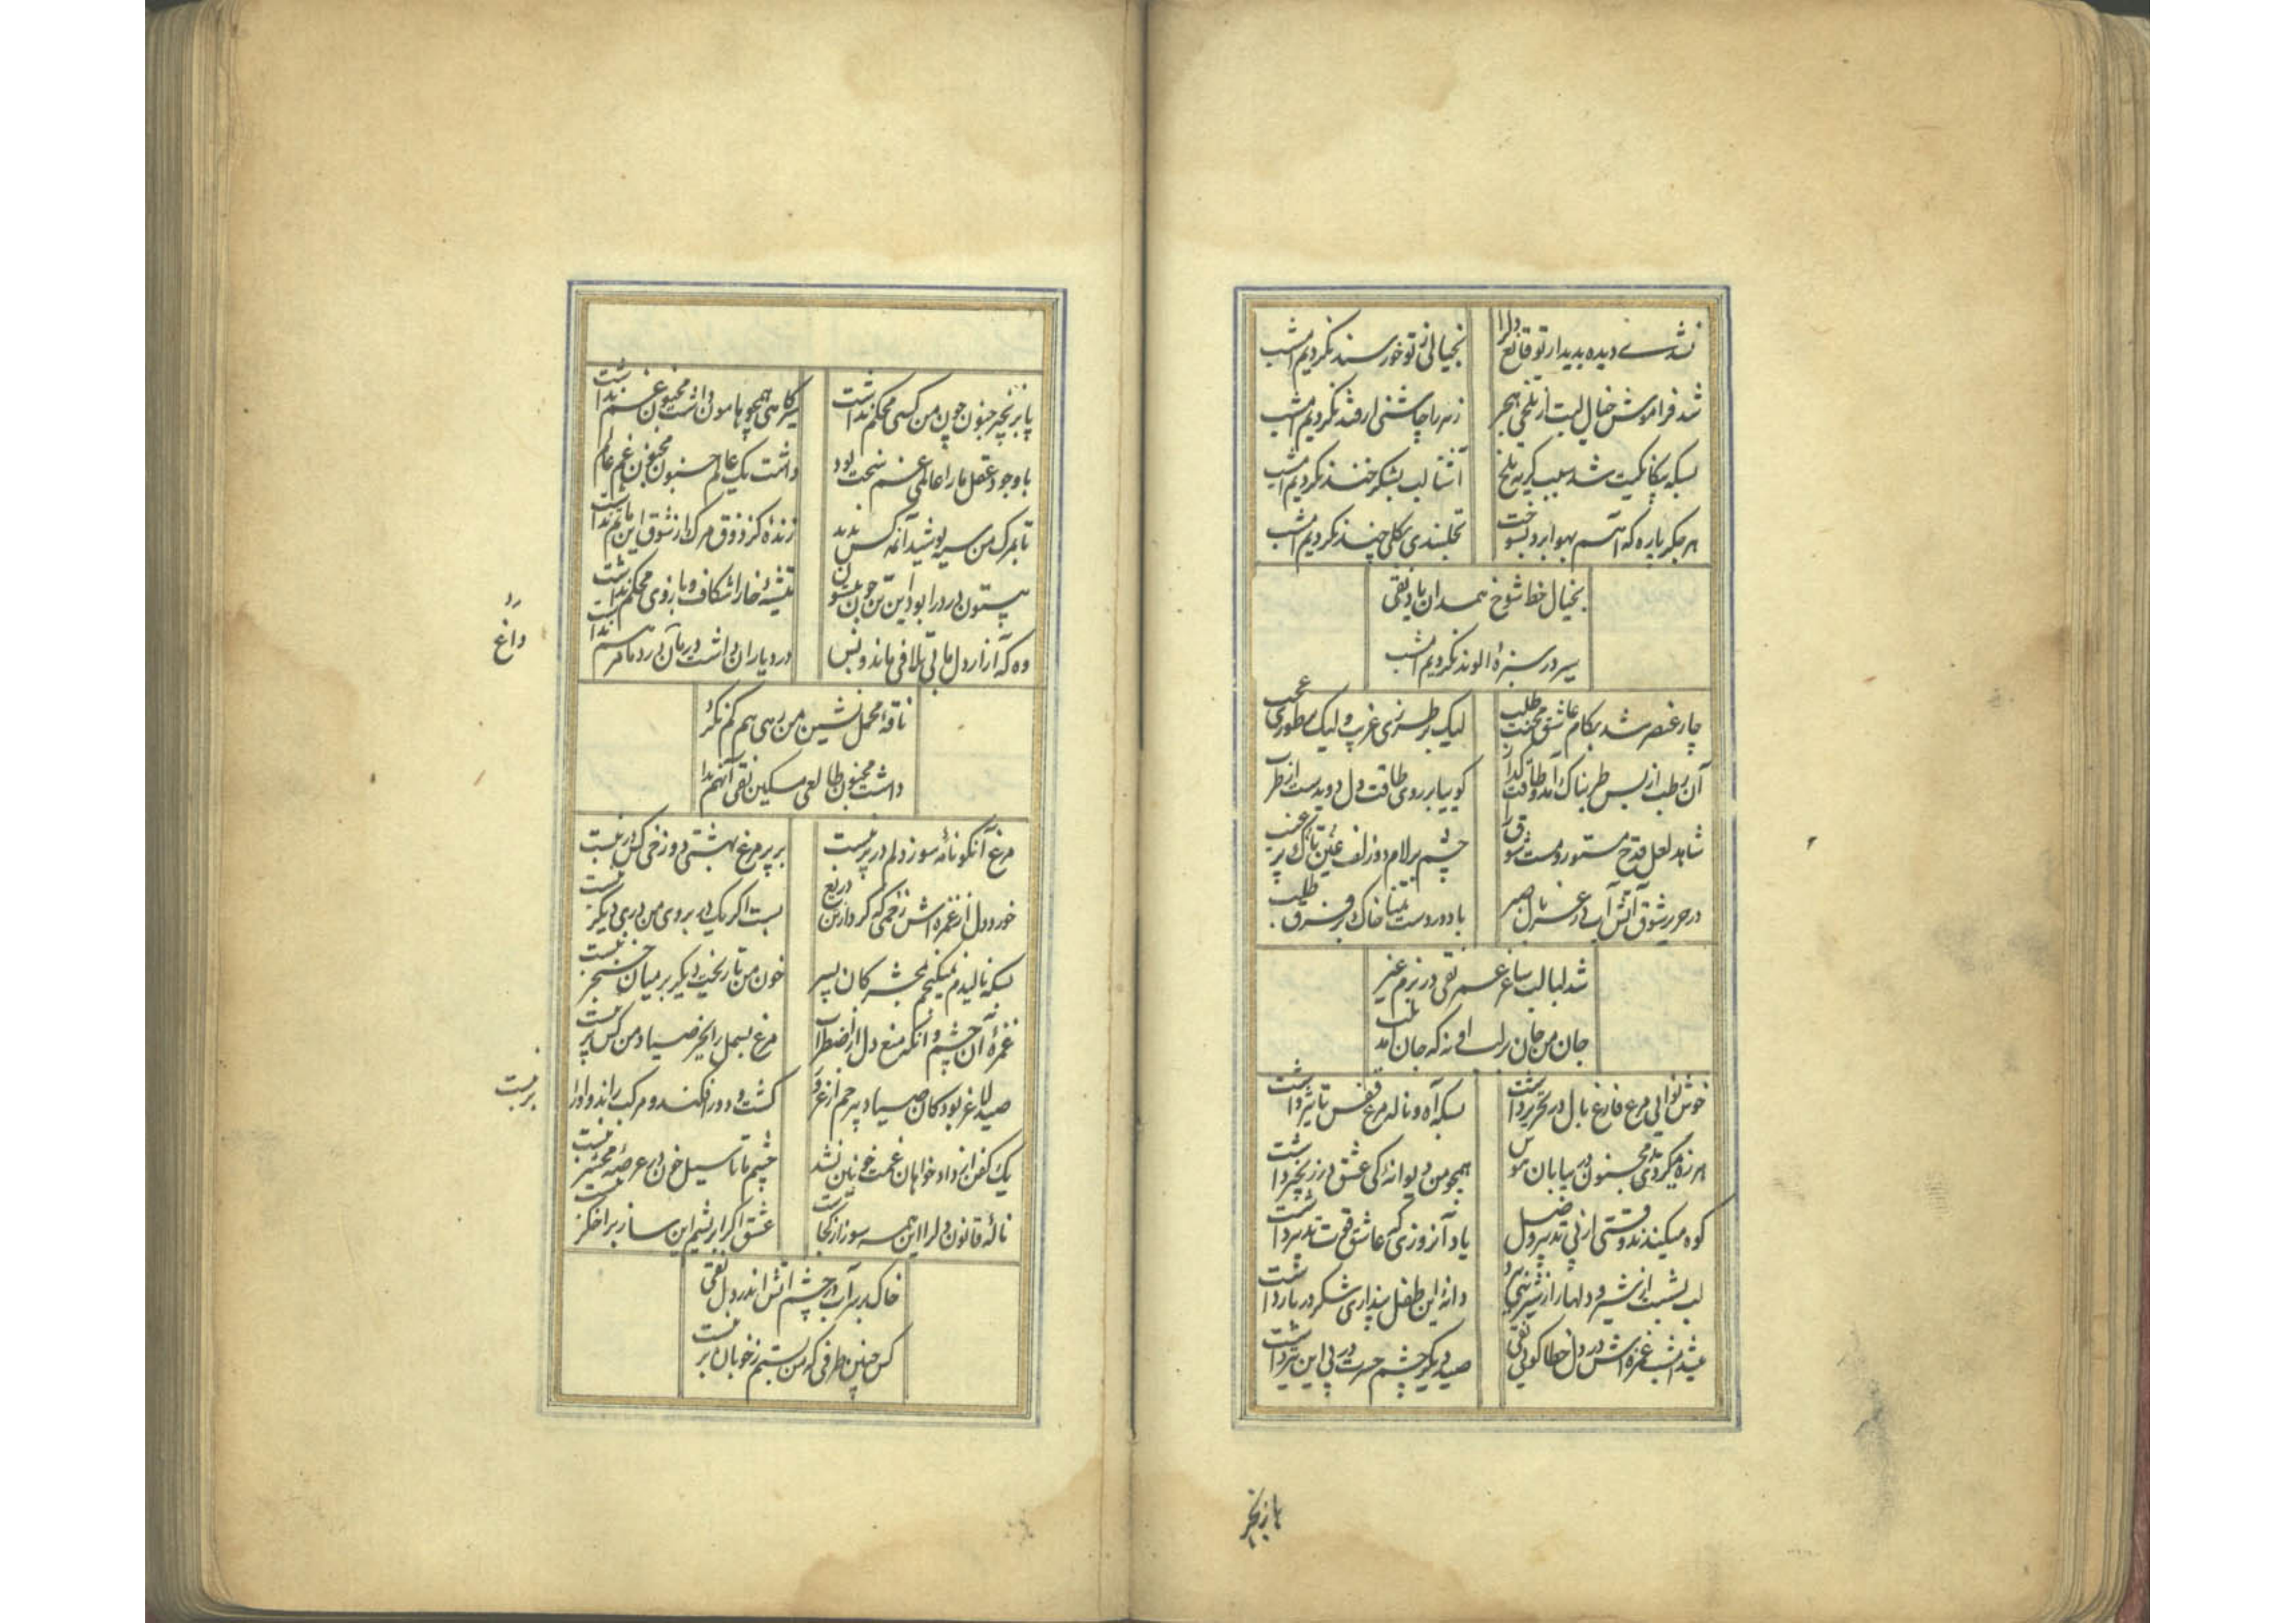 نشد دیده بدیدار تو قانع دلرا
بخیالی ز تو خورسند نکردیم امشب
شد فراموش خیال لبت از تلخی هجر
زهر را چاشنی از قند نکردیم امشب
بسکه بیگانگیت شد سبب گریه تلخ
آشنا لب بشکر خند نکردیم امشب
هر جگر پاره که آهم بهوا برد بسوخت
نخلبندی بگلی چند نکردیم امشب
بخیال خط شوخ همدان یاد نقی
سیر در سبزه الوند نکردیم امشب
چار عنصر شد بکام عاشق محنت طلب
لیک بر طرزی غریب و لیک بر طوری عجب
آن رطب از بس طربناک آمد و طاقت گداز
گوییا بر روی طاقت دل دویدست از طرب
شاهد لعل قدح مستور و مست شوق را
چشم بر لام دو زلف عین تاک پر عنب
در حریر شوق آتش آب در غربال صبر
باد در دست تمنا خاک بر فرق طلب
شد لبالب ساغر عمر نقی در بزم غیر
جان من جان بر لب او نه که جان آمد بلب
خوش نوایی مرغ فارغ بال در تحریر داشت
بسکه آه و ناله مرغ قفس تاثیر داشت
هرزه میگردید مجنون در بیابان هوس
همچو من دیوانه کی عشق در زنجیر داشت
کوه میکندند وقتی از پی تدبیر وصل
یاد آنروزی که عاشق قوت تدبیر داشت
لب بشست از شیر و دلها را ز شیرینی ببرد
دایه این طفل پنداری شکر در بار داشت
شد امشب غمزه اش در دل خطا گویی نقی
صید دیگر چشم حسرت در پی این تیر داشت
پا بزنجیر
پا بزنجیر جنون چون من کسی محکم نداشت
سیرگاهی همچو هامون داشت مجنون غم نداشت
با وجود عقل ما را عالمی غم سخت بود
داشت یک عالم جنون مجنون غم عالم نداشت
تا بمرگ من سیه پوشید آنمه کس ندید
زنده کز ذوق مرگ از شوق این ماتم نداشت
بیستون درد را بود این تن چون بیستون
تیشه خارا شکاف و بازوی محکم نداشت
وه که آزار دل ما بی تلافی ماند و بس
درد یاران داشت درمان درد ما مرهم نداشت
داغ
ناقه محمل نشین من رهی هم کم نکرد
داشت مجنون طالعی مسکین نقی آنهم نداشت
مرغ آنگونانه سوز دلم در بر نیست
بر پر مرغ بهشتی دوزخی کس در نبست
خورد دل از غمزه اش زخمی که کرد از من دریغ
بست اگر یک در بروی من دری دیگر نبست
بسکه نالیدم میکنم بمحشر کان پسر
خون من تا ریخت دیگر بر میان خنجر نبست
غمزه آن چشم و آنگه منع دل از اضطراب
مرغ بسمل را بجز صیاد من کس پر نبست
صید لاغر بود کان صیاد بیرحم از غرور
کشت و دور افکند و مرکب راند و او را بر نبست
یک کفن از داد خواهان غمت خونین نشد
چشم ما تا سیل خون در عرصه محشر نبست
ناله قانون دلرا این همه سوز از کجاست
عشق اگر ابریشم این ساز بر اخگر نبست
خاک بر سر آب در چشم آتش اندر دل نقی
کس چنین طرفی که من بستم ز خوبان بر نبست